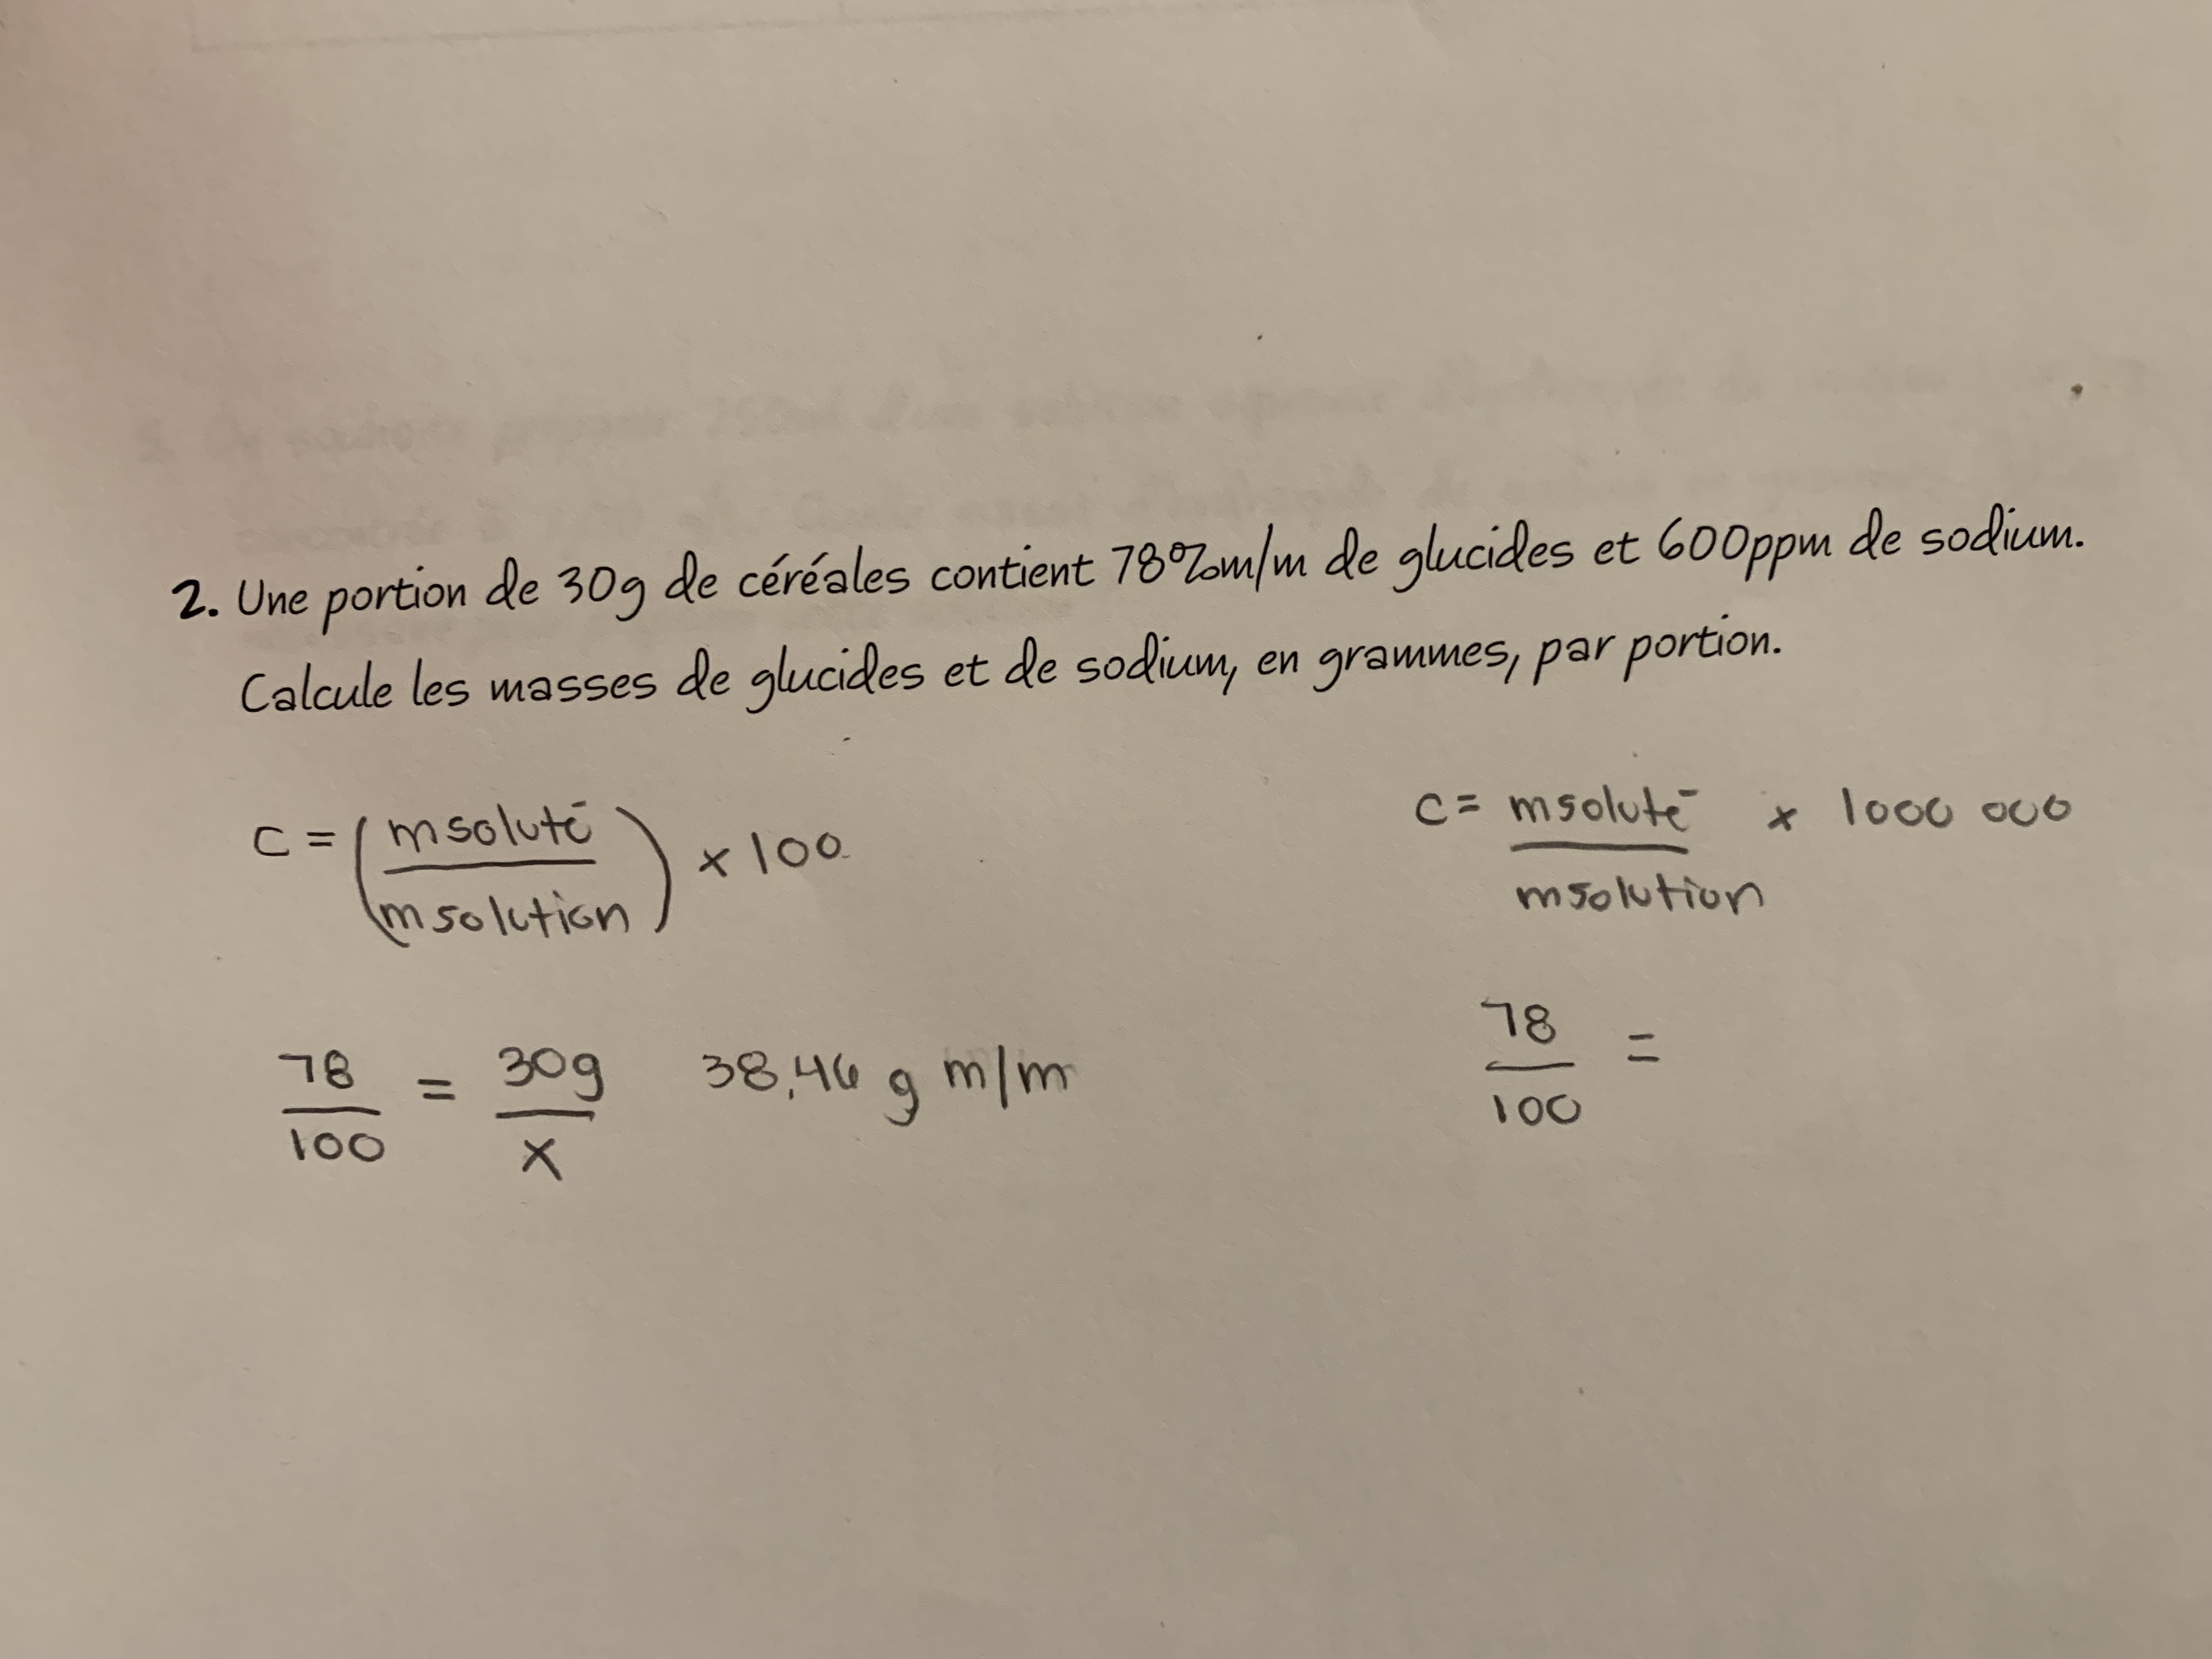 2. Une portion de 30g de céréales contient 78%m/m de glucides et 600ppm de sodium.
Calcule les masses de glucides et de sodium, en grammes, par portion.
C = (msoluté / msolution) x 100
78 / 100 = 30g / x 38,46 g m/m
C = msoluté / msolution x 1000 000
78 / 100 =